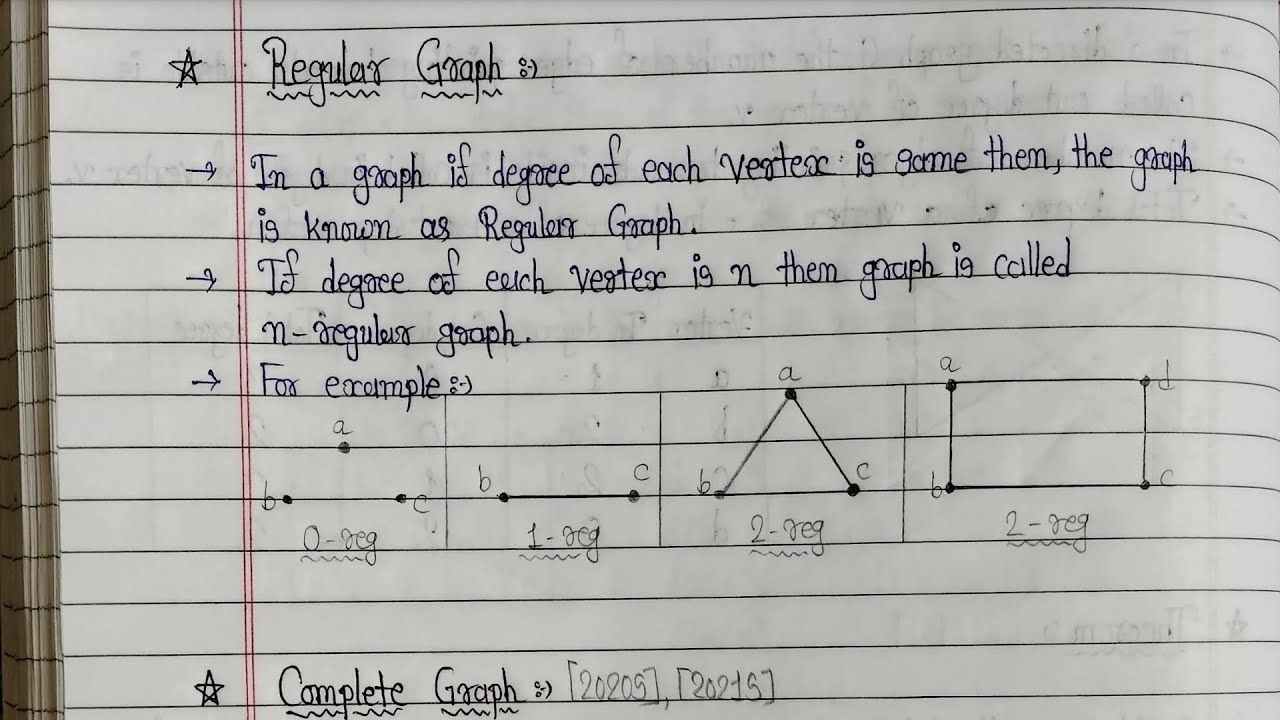 ☆ Regular Graph :-)
→ In a graph if degree of each vertex is same them, the graph
is known as Regular Graph.
→ If degree of each vertex is n them graph is called
n-regular graph.
→ For example :-)
a
b c
0-reg
b c
1-reg
a
b c
2-reg
a d
b c
2-reg
☆ Complete Graph :-) [2020S], [2021S]